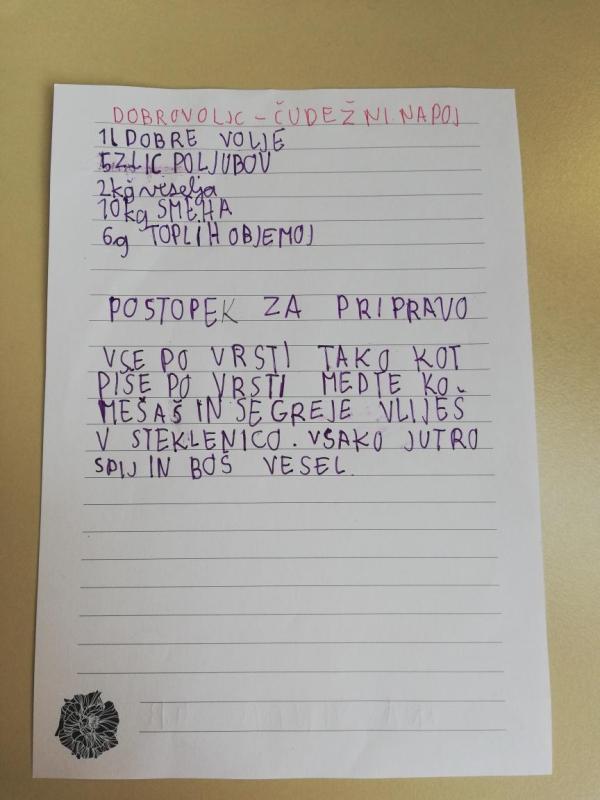 DOBROVOLJC - ČUDEŽNI NAPOJ
1L DOBRE VOLJE
5 ZLIC POLJUBOV
2kg veselja
10kg SMEHA
6g TOPLIH OBJEMOJ
POSTOPEK ZA PRIPRAVO
VSE PO VRSTI TAKO KOT
PIŠE PO VRSTI MEDTE KO
MEŠAŠ IN SE GREJE VLIJEŠ
V STEKLENICO. VSAKO JUTRO
SPIJ IN BOŠ VESEL.